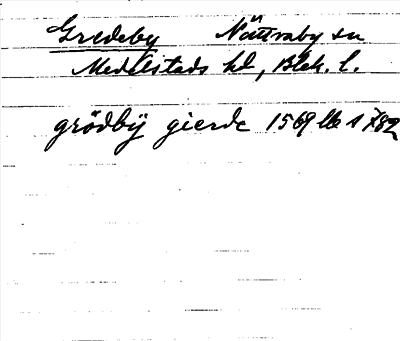 Gredeby Nättraby sn
Medelstads hd, Blek. l.
grödbÿ gierde 1569 llo s 782